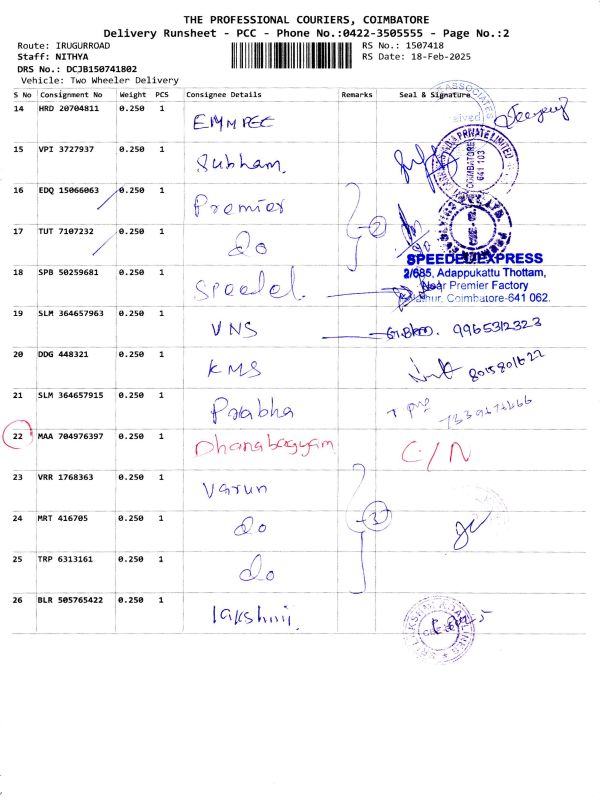 THE PROFESSIONAL COURIERS, COIMBATORE
Delivery Runsheet - PCC - Phone No.:0422-3505555 - Page No.:2
Route: IRUGURROAD RS No.: 1507418
Staff: NITHYA RS Date: 18-Feb-2025
DRS No.: DCJB150741802
Vehicle: Two Wheeler Delivery
S No Consignment No Weight PCS Consignee Details Remarks Seal & Signature
14 HRD 20704811 0.250 1 EMMPEE
15 VPI 3727937 0.250 1 Subham.
PRIVATE LIMITED
COIMBATORE
641 103
16 EDQ 15066063 0.250 1 Premier
2
17 TUT 7107232 0.250 1 do
SPEEDEL EXPRESS
2/685, Adappukattu Thottam,
Near Premier Factory
Coimbatore-641 062.
18 SPB 50259681 0.250 1 Speedel.
19 SLM 364657963 0.250 1 VNS 9965312323
20 DDG 448321 0.250 1 KMS 8015801622
21 SLM 364657915 0.250 1 Prabha
22 MAA 704976397 0.250 1 Dhanabagyam C/N
23 VRR 1768363 0.250 1 Varun
24 MRT 416705 0.250 1 do 3
25 TRP 6313161 0.250 1 do
26 BLR 505765422 0.250 1 lakshmi